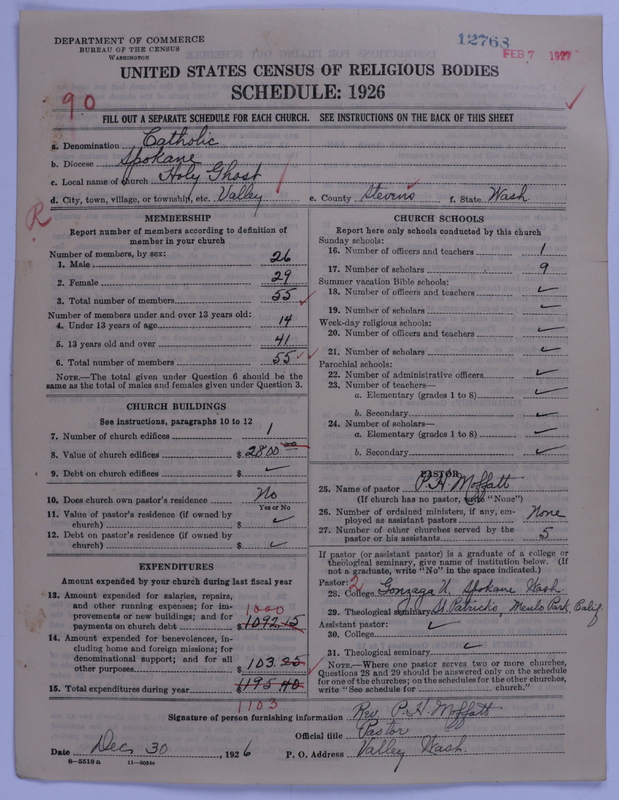 DEPARTMENT OF COMMERCE
BUREAU OF THE CENSUS
WASHINGTON
12763
FEB 7 1927
UNITED STATES CENSUS OF RELIGIOUS BODIES
SCHEDULE: 1926
90
FILL OUT A SEPARATE SCHEDULE FOR EACH CHURCH. SEE INSTRUCTIONS ON THE BACK OF THIS SHEET
a. Denomination Catholic
b. Diocese Spokane
c. Local name of church Holy Ghost
d. City, town, village, or township, etc. Valley e. County Stevens f. State Wash
R
MEMBERSHIP
Report number of members according to definition of
member in your church
Number of members, by sex:
1. Male 26
2. Female 29
3. Total number of members 55
Number of members under and over 13 years old:
4. Under 13 years of age 14
5. 13 years old and over 41
6. Total number of members 55
NOTE.—The total given under Question 6 should be
the same as the total of males and females given under Question 3.
CHURCH BUILDINGS
See instructions, paragraphs 10 to 12
7. Number of church edifices 1
8. Value of church edifices $ 2800 00
9. Debt on church edifices $
10. Does church own pastor's residence No
Yes or No
11. Value of pastor's residence (if owned by
church) $
12. Debt on pastor's residence (if owned by
church) $
EXPENDITURES
Amount expended by your church during last fiscal year
13. Amount expended for salaries, repairs,
and other running expenses; for im-
provements or new buildings; and for 1000
payments on church debt $ 1092.15
14. Amount expended for benevolences, in-
cluding home and foreign missions; for
denominational support; and for all
other purposes $ 103.25
15. Total expenditures during year $ 1195.40
1103
CHURCH SCHOOLS
Report here only schools conducted by this church
Sunday schools:
16. Number of officers and teachers 1
17. Number of scholars 9
Summer vacation Bible schools:
18. Number of officers and teachers
19. Number of scholars
Week-day religious schools:
20. Number of officers and teachers
21. Number of scholars
Parochial schools:
22. Number of administrative officers
23. Number of teachers—
a. Elementary (grades 1 to 8)
b. Secondary
24. Number of scholars—
a. Elementary (grades 1 to 8)
b. Secondary
PASTOR
25. Name of pastor P. H. Moffatt
(If church has no pastor, write "None")
26. Number of ordained ministers, if any, em-
ployed as assistant pastors None
27. Number of other churches served by the
pastor or his assistants 5
If pastor (or assistant pastor) is a graduate of a college or
theological seminary, give name of institution below. (If
not a graduate, write "No" in the space indicated.)
Pastor: 2
28. College Gonzaga U. Spokane Wash.
29. Theological seminary St Patricks, Menlo Park, Calif
Assistant pastor:
30. College
31. Theological seminary
NOTE.—Where one pastor serves two or more churches,
Questions 28 and 29 should be answered only on the schedule
for one of the churches; on the schedules for the other churches,
write "See schedule for church."
Signature of person furnishing information Rev P. H. Moffatt
Official title Pastor
Date Dec. 30, 1926 P. O. Address Valley Wash.
8—5519a 11—9054a